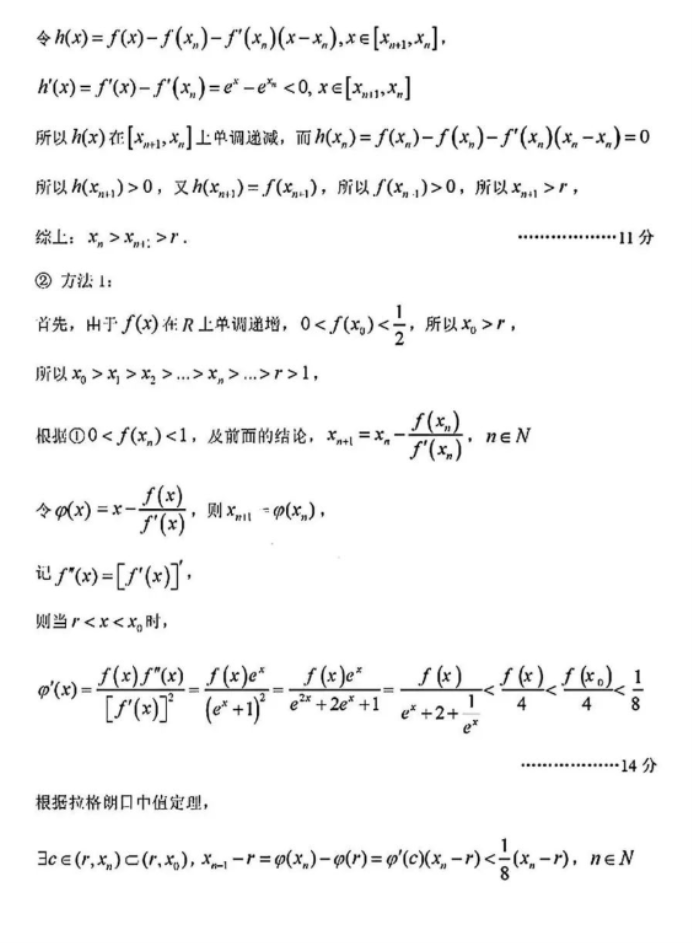 令 h(x) = f(x) − f(xₙ) − f′(xₙ)(x − xₙ), x ∈ [xₙ₊₁, xₙ],
h′(x) = f′(x) − f′(xₙ) = eˣ − e^{xₙ} < 0, x ∈ [xₙ₊₁, xₙ]
所以 h(x) 在 [xₙ₊₁, xₙ] 上单调递减，而 h(xₙ) = f(xₙ) − f(xₙ) − f′(xₙ)(xₙ − xₙ) = 0
所以 h(xₙ₊₁) > 0，又 h(xₙ₊₁) = f(xₙ₊₁)，所以 f(xₙ₊₁) > 0，所以 xₙ₊₁ > r，
综上：xₙ > xₙ₊₁ > r． ··················11 分
② 方法 1：
首先，由于 f(x) 在 R 上单调递增，0 < f(x₀) < 1/2，所以 x₀ > r，
所以 x₀ > x₁ > x₂ > ... > xₙ > ... > r > 1，
根据① 0 < f(xₙ) < 1，及前面的结论，xₙ₊₁ = xₙ − f(xₙ)/f′(xₙ)，n ∈ N
令 φ(x) = x − f(x)/f′(x)，则 xₙ₊₁ = φ(xₙ)，
记 f″(x) = [f′(x)]′，
则当 r < x < x₀ 时，
φ′(x) = f(x)f″(x)/[f′(x)]² = f(x)eˣ/(eˣ + 1)² = f(x)eˣ/(e²ˣ + 2eˣ + 1) = f(x)/(eˣ + 2 + 1/eˣ) < f(x)/4 < f(x₀)/4 < 1/8
··················14 分
根据拉格朗日中值定理，
∃c ∈ (r, xₙ) ⊂ (r, x₀), xₙ₊₁ − r = φ(xₙ) − φ(r) = φ′(c)(xₙ − r) < 1/8(xₙ − r)，n ∈ N